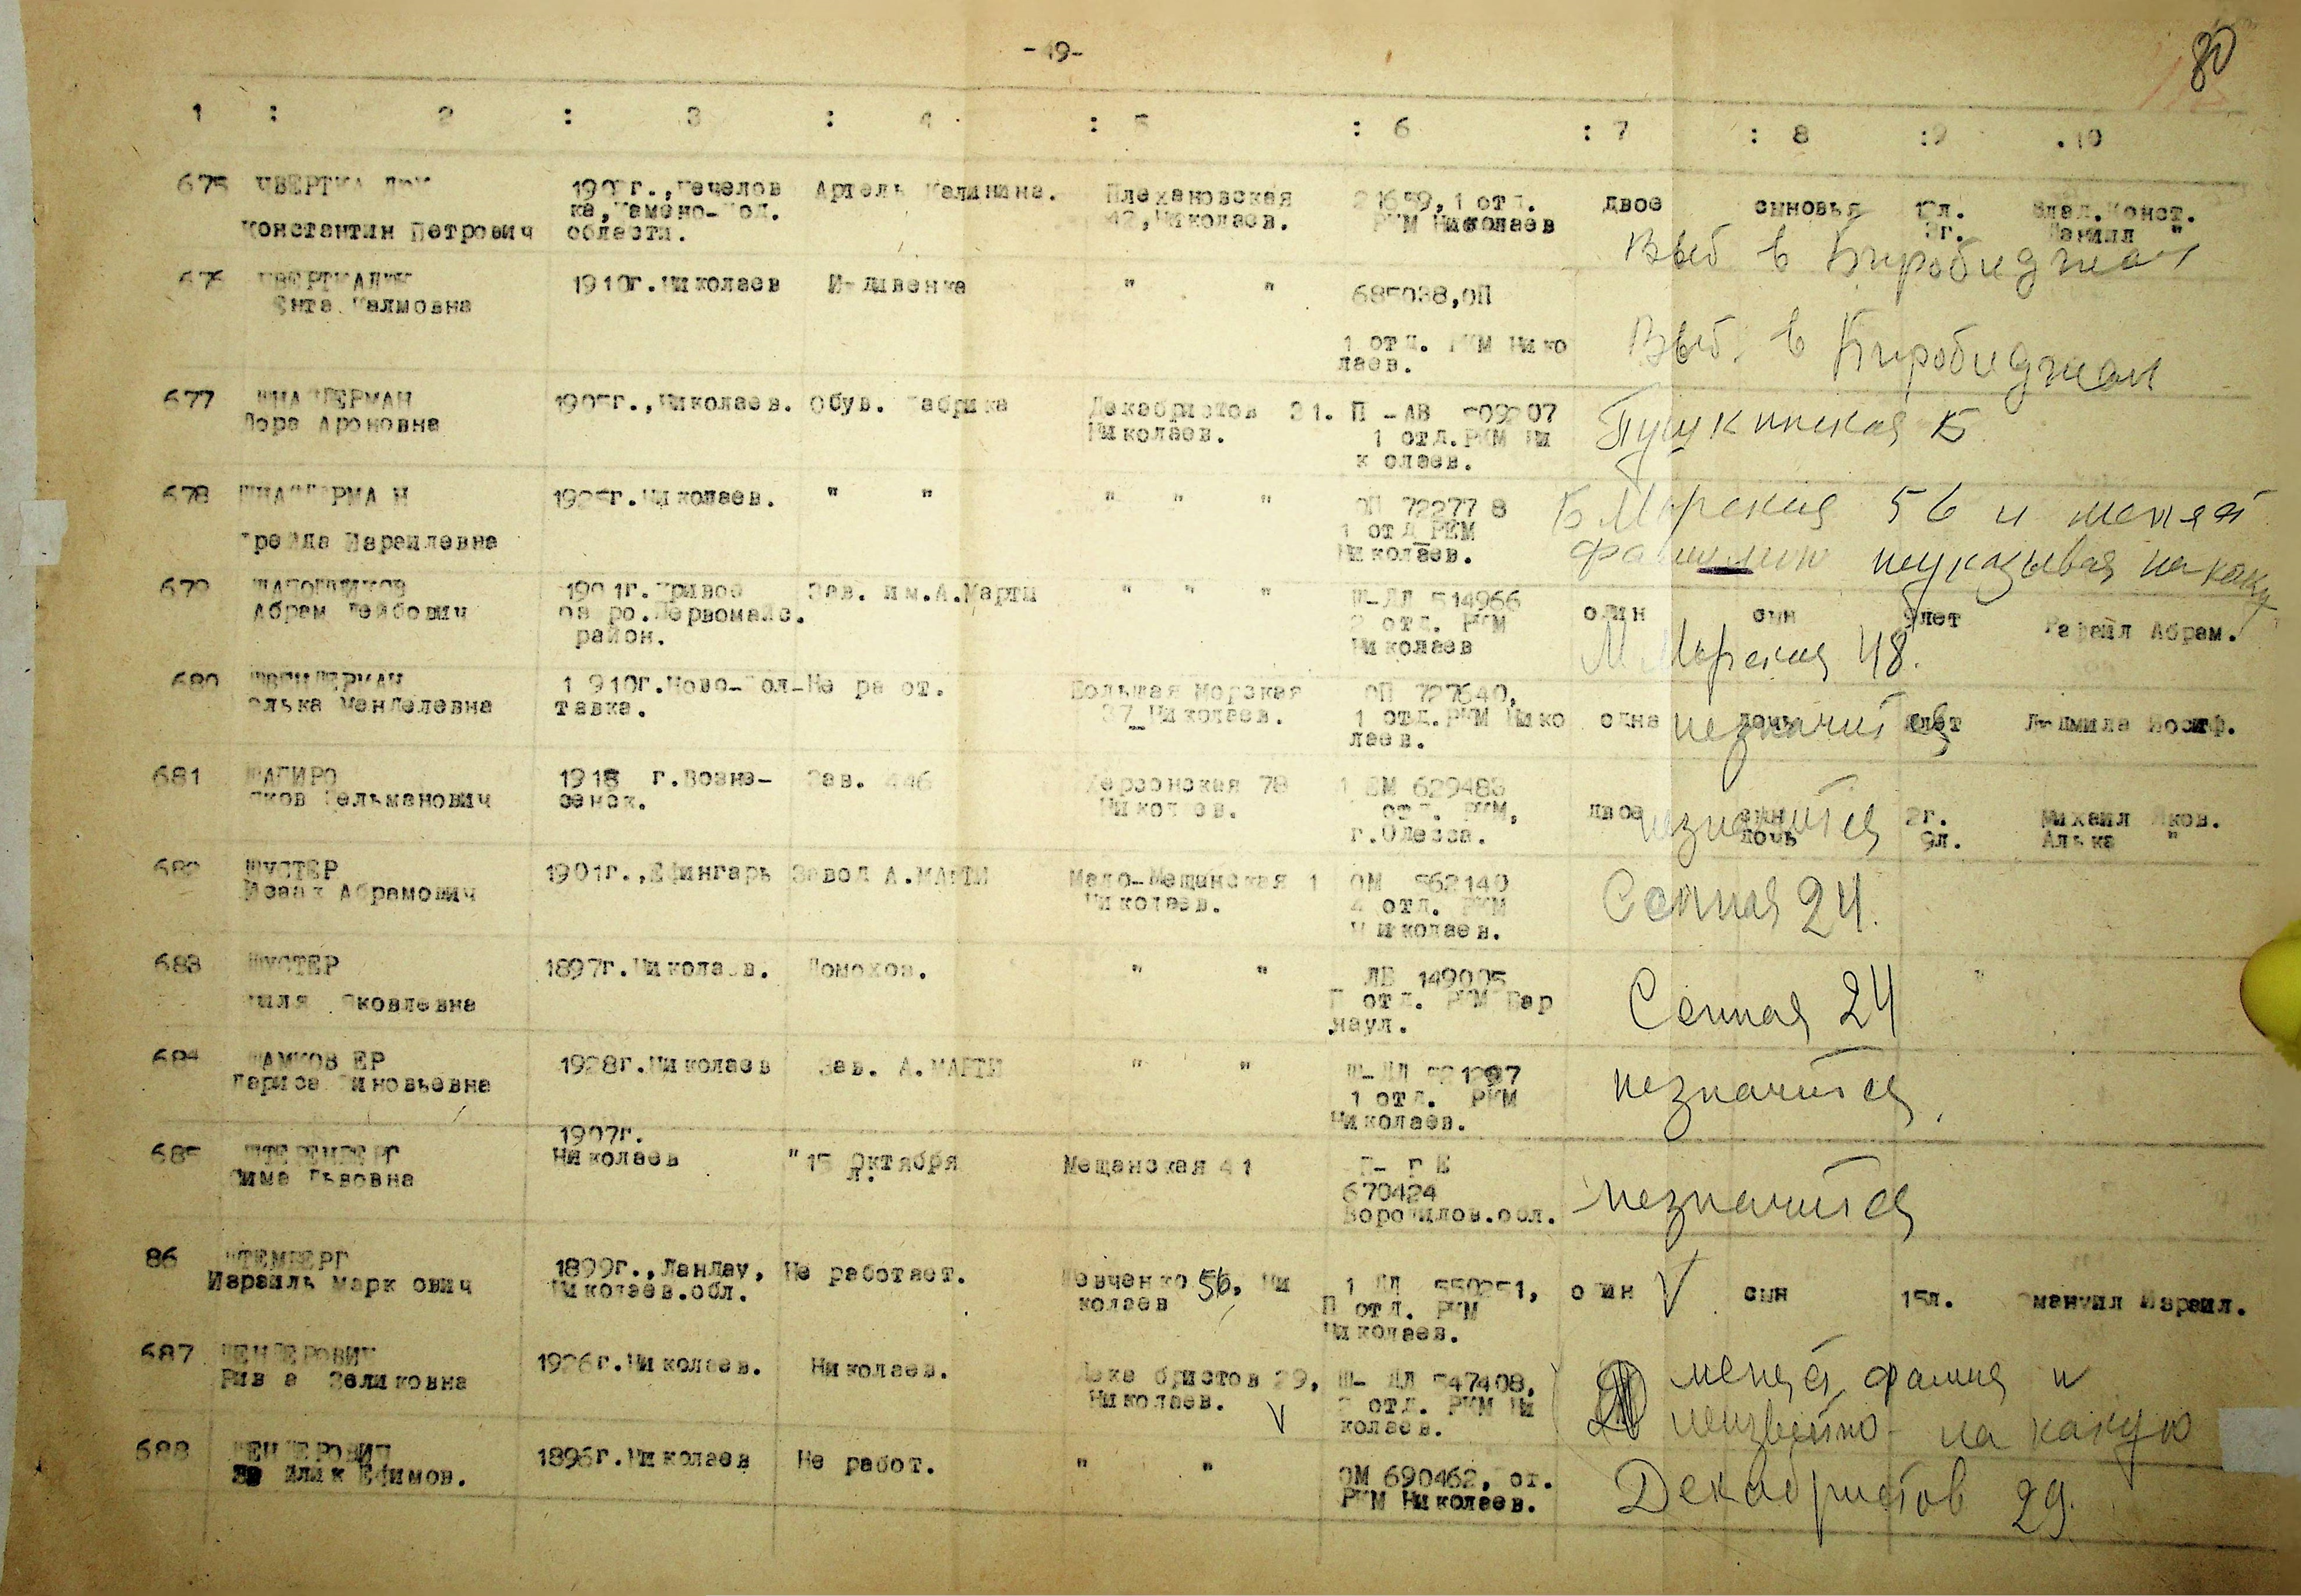 -49-
80
1 : 2 : 3 : 4 : 5 : 6 : 7 : 8 :9 .10
675
Константин Петрович
области.
Артель Калинина.
Плехановская
42, Николаев.
21659, 1 отд.
РКМ Николаев
двое
сыновья
Влад. Конст.
Даниил "
Выб в Биробиджан
676
1910г. Николаев
И-дивенка
" "
685038, ОП
1 отд. РКМ Нико
лаев.
Выб. в Биробиджан
677
Дора Ароновна
Николаев.
Обув. фабрика
Декабристов 31.
Николаев.
П -АВ 509207
1 отд. РКМ Ни
колаев.
Пушкинская
678
Израилевна
Николаев.
" "
" " "
ОП 72277 8
1 отд РКМ
Николаев.
Б Морская 56 и меняет
фамилию неуказывая на каку
679
Абрам Лейбович
1901г. Кривое
Первомайс.
район.
Зав. им. А. Марти
" " "
Ш-ДЛ 514966
2 отд. РКМ
Николаев
один
сын
9лет
Рафаил Абрам.
М Морская 48.
680
Менделевна
1 910г. Ново-Пол-
тавка.
Не работ.
Большая Морская
37 Николаев.
ОП 727640,
1 отд. РКМ Нико
лаев.
одна
дочь
Людмила Иосиф.
незначится
681
ШАПИРО
Яков Гельманович
1918 г. Возне-
сенск.
Зав. 446
Херсонская 78
Николаев.
1 ВМ 629483
отд. РКМ,
г. Одесса.
двое
сын
дочь
2г.
9л.
Михаил Яков.
Алька "
незначится
682
ШУСТЕР
Исаак Абрамович
1901г., Ефингарь
Завод А. МАРТИ
Мало-Мещанская 1
Николаев.
ОМ 562140
4 отд. РКМ
Николаев.
Сенная 24.
683
ШУСТЕР
Яковлевна
1897г. Николаев.
Домохоз.
" "
ЛВ 149005
отд. РКМ Бар
наул.
Сенная 24
684
Лариса Зиновьевна
1928г. Николаев
Зав. А. МАРТИ
" "
1 отд. РКМ
Николаев.
незначится
685
ШТЕРЕНБЕРГ
Сима Львовна
1907г.
Николаев
" 15 Октября
Мещанская 41
670424
Ворошилов. обл.
незначится
86
ШТЕМБЕРГ
Израиль Марк ович
1899г., Ландау,
Николаев. обл.
Не работает.
Шевченко 56, Ни
колаев
1 ДЛ 550251,
П отд. РКМ
Николаев.
один
V
сын
15л.
Эмануил Израил.
687
ШЕНДЕРОВИЧ
Рив а Зеликовна
1926г. Николаев.
Николаев.
Декабристов 29,
Николаев.
V
Ш- ДЛ 547408,
2 отд. РКМ Ни
колаев.
меняет и
неизвестно на какую
688
ШЕНДЕРОВИЧ
Ефимов.
1896г. Николаев
Не работ.
" "
ОМ 690462, от.
РКМ Николаев.
Декабристов 29.